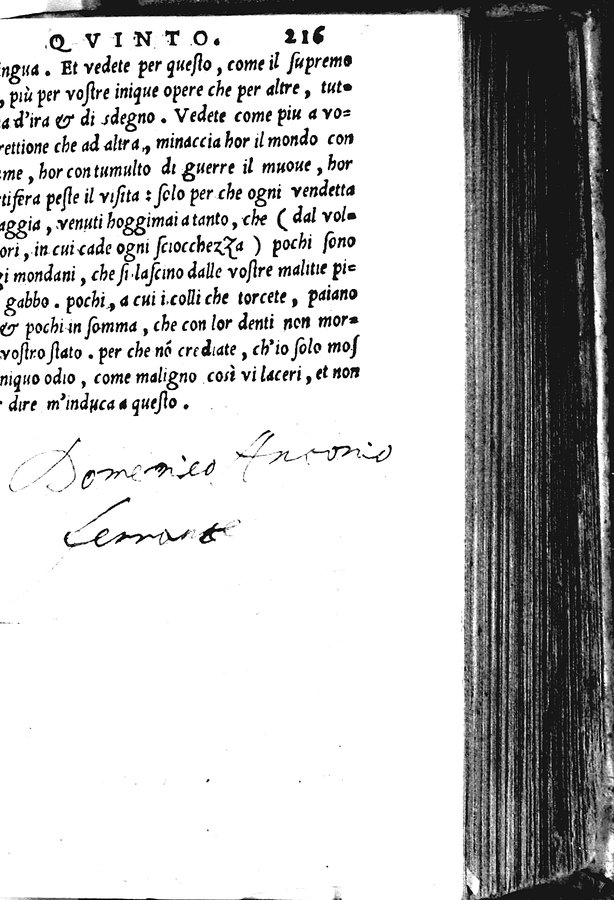 QVINTO. 216
ingua. Et vedete per queſto, come il ſupremo
, più per voſtre inique opere che per altre, tut=
a d'ira & di sdegno. Vedete come piu a vo=
rettione che ad altra, minaccia hor il mondo con
ame, hor con tumulto di guerre il muoue, hor
rtifera peſte il viſita: ſolo per che ogni vendetta
aggia, venuti hoggimai a tanto, che (dal vol=
ori, in cui cade ogni ſciocchezza) pochi ſono
gi mondani, che ſi laſcino dalle voſtre malitie pi=
gabbo. pochi, a cui i colli che torcete, paiano
& pochi in ſomma, che con lor denti non mor=
voſtro ſtato. per che nó crediate, ch'io ſolo moſ
niquo odio, come maligno così vi laceri, et non
r dire m'induca a queſto.
Domenico Antonio